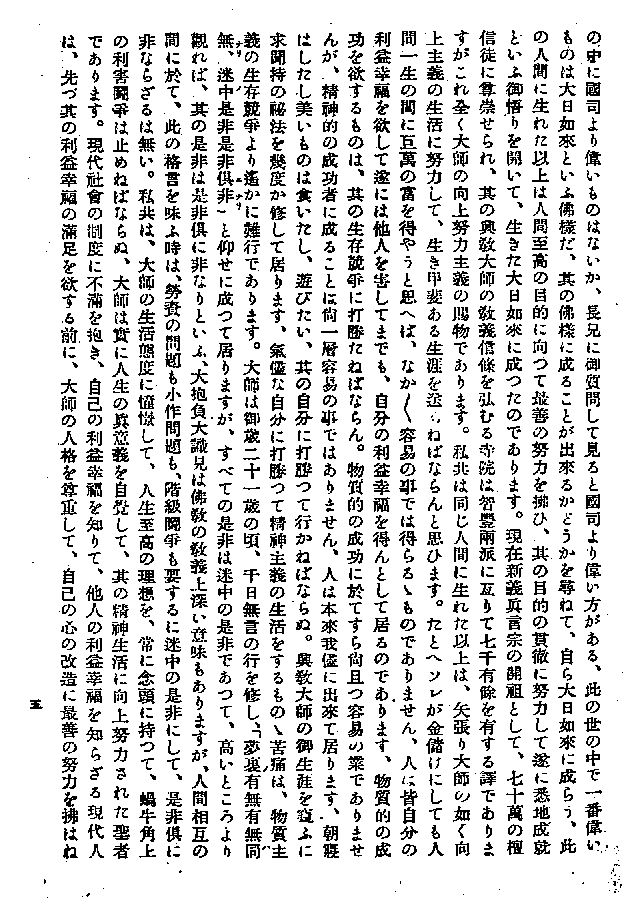 の中に國司より偉いものはないか、長兄に御質問して見ると國司より偉い方がある、此の世の中で一番偉い
ものは大日如來といふ佛樣だ、其の佛樣に成ることが出來るかどうかを尋ねて、自ら大日如來に成らう、此
の人間に生れた以上は人間至高の目的に向つて最善の努力を拂ひ、其の目的の貫徹に努力して遂に悉地成就
といふ御悟りを開いて、生きた大日如來に成つたのであります。現在新義眞言宗の開祖として、七十萬の檀
信徒に尊崇せられ、其の興敎大師の敎義信條を弘むる寺院は智豐兩派に亙りて七千有餘を有する譯でありま
すがこれ全く大師の向上努力主義の賜物であります。私共は同じ人間に生れた以上は、矢張り大師の如く向
上主義の生活に努力して、生き甲斐ある生涯を送らねばならんと思ひます。たとへソレが金儲けにしても人
間一生の間に巨萬の富を得やうと思へば、なか〳〵容易の事では得らるゝものでありません、人は皆自分の
利益幸福を欲して遂には他人を害してまでも、自分の利益幸福を得んとして居るのであります、物質的の成
功を欲するものは、其の生存競爭に打勝たねばならん。物質的の成功に於てすら尙且つ容易の業でありませ
んが、精神的の成功者に成ることは尙一層容易の事ではありません、人は本來我儘に出來て居ります、朝寢
はしたし美いものは食いたし、遊びたい、其の自分に打勝つて行かねばならぬ。興敎大師の御生涯を窺ふに
求聞持の祕法を幾度か修して居ります、氣儘な自分に打勝つて精神主義の生活をするもの丶苦痛は、物質主
義の生存競爭より遙かに難行であります。大師は御歳二十一歳の頃、千日無言の行を修し、「夢裏有無有無同
無、迷中是非是非俱非」と仰せに成つて居りますが、すべての是非は迷中の是非であつて、高いところより
觀れば、其の是非は是非俱に非なりといふ、大地負大識見は佛敎の敎義上深い意味もありますが、人間相互の
間に於て、此の格言を味ふ時は、勞資の問題も小作問題も、階級鬪爭も要するに迷中の是非にして、是非俱に
非ならざるは無い。私共は、大師の生活態度に憧憬して、人生至高の理想を、常に念頭に持つて、蝸牛角上
の利害鬪爭は止めねばならぬ、大師は實に人生の眞意義を自覺して、其の精神生活に向上努力された聖者
であります。現代社會の制度に不滿を抱き、自己の利益幸福を知りて、他人の利益幸福を知らざる現代人
は、先づ其の利益幸福の滿足を欲する前に、大師の人格を尊重して、自己の心の改造に最善の努力を拂はね
五